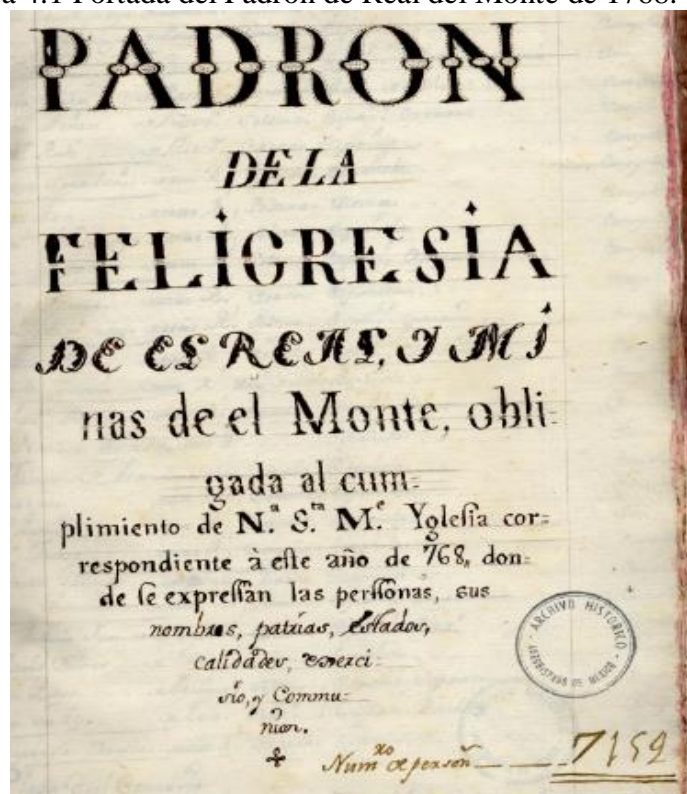 a 4.1 Portada del Padrón de Real del Monte de 1768.
PADRON
DE LA
FELIGRESIA
DE EL REAL, Y MI
nas de el Monte, obli=
gada al cum=
plimiento de N.ª S.ta M.e Yglesia cor=
respondiente à este año de 768, don=
de se expressan las perssonas, sus
nombres, patrias, estados,
calidades, exerci=
sio, y Commu=
nion.
ARCHIVO HISTÓRICO
ARZOBISPADO DE MEXICO
Num.ro de person.
7159